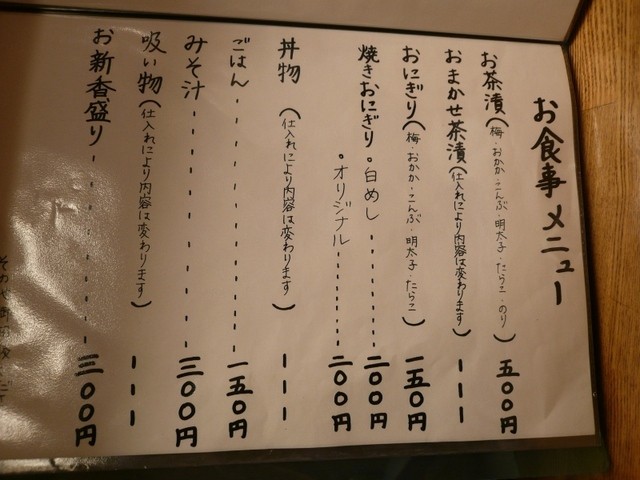 お食事メニュー
お茶漬(梅・おかか・こんぶ・明太子・たらこ・のり) 五〇〇円
おまかせ茶漬(仕入れにより内容は変わります) ーーー
おにぎり(梅・おかか・こんぶ・明太子・たらこ) 一五〇円
焼きおにぎり 。白めし・・・・・・・・ 二〇〇円
。オリジナル・・・・・・・・ 二〇〇円
丼物 (仕入れにより内容は変わります) ーーー
ごはん・・・・・・・・・・・・ 一五〇円
みそ汁・・・・・・・・・・・・ 三〇〇円
吸い物(仕入れにより内容は変わります) ーーー
お新香盛り・・・・・・・・・・ 三〇〇円